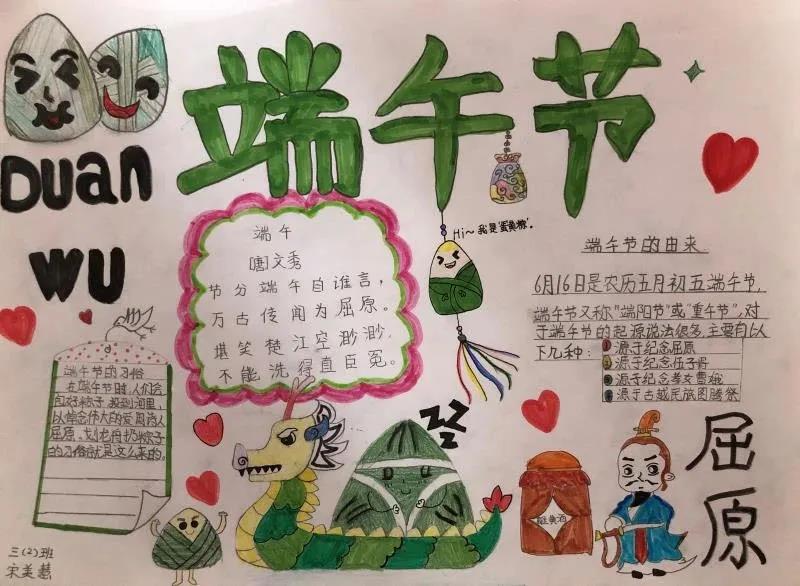 端午节
Duan
WU
端午
唐文秀
节分端午自谁言,
万古传闻为屈原。
堪笑楚江空渺渺,
不能洗得直臣冤。
Hi~我是"蛋黄粽".
端午节的由来
6月16日是农历五月初五端午节,
端午节又称"端阳节"或"重午节",对
于端午节的起源说法很多,主要有以
下几种:
1源于纪念屈原
2源于纪念伍子胥
3源于纪念孝女曹娥
4源于古越民族图腾祭
端午节的习俗
在端午节时,人们会
包好粽子,投到河里,
以悼念伟大的爱国诗人
屈原。划龙舟扔粽子
的习俗就是这么来的。
ZZZ
雄黄酒
屈原
三(2)班
宋美慧